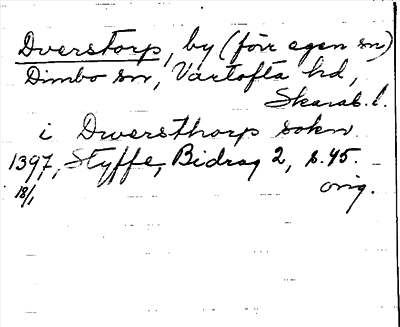 Dverstorp, by (förr egen sn)
Dimbo sn, Vartofta hd,
Skarab. l.
i Dwersthorp sokn
1397, Styffe, Bidrag 2, s. 45.
18/1 orig.